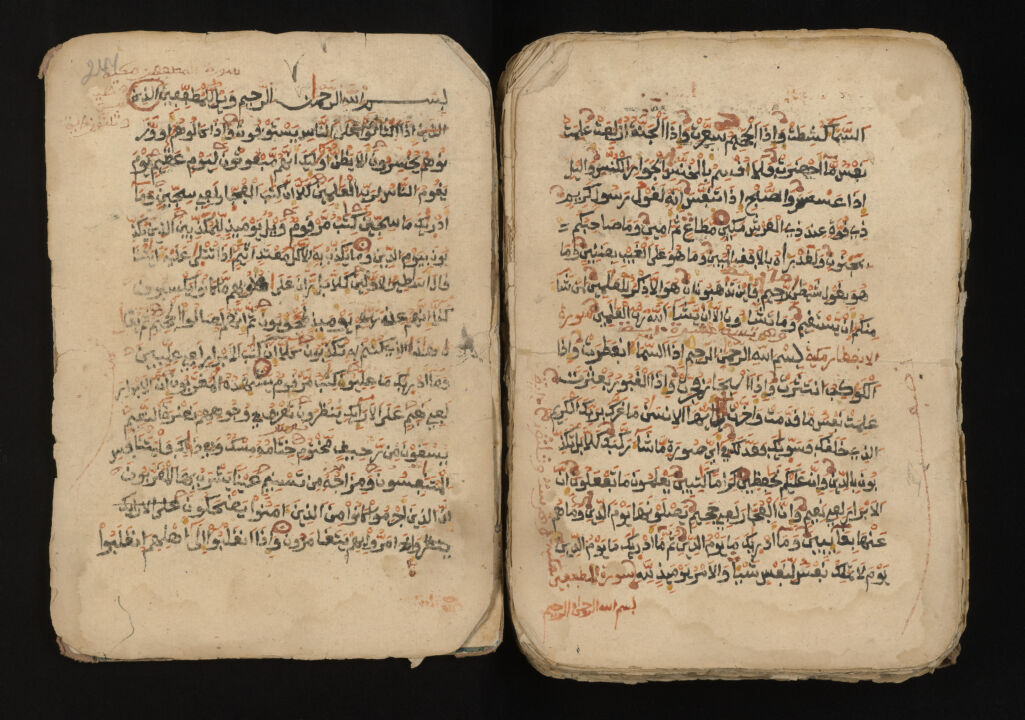 السما كشطت واذا الجحيم سعرت واذا الجنة ازلفت علمت
نفس ما احضرت فلا اقسم بالخنس الجوار الكنس واليل
اذا عسعس والصبح اذا تنفس انه لقول رسول كريم
ذي قوة عند ذي العرش مكين مطاع ثم امين وما صاحبكم
بمجنون ولقد راه بالافق المبين وما هو على الغيب بضنين وما
هو بقول شيطن رجيم فاين تذهبون ان هو الا ذكر للعلمين لمن شا
منكم ان يستقيم وما تشاون الا ان يشا الله رب العلمين سورة
الانفطار مكية بسم الله الرحمن الرحيم اذا السما انفطرت واذا
الكوكب انتثرت واذا البحار فجرت واذا القبور بعثرت
علمت نفس ما قدمت واخرت يايها الانسن ما غرك بربك الكريم
الذي خلقك فسويك فعدلك في اي صورة ما شا ركبك كلا بل تكذ
بون بالدين وان عليكم لحفظين كراما كتبين يعلمون ما تفعلون ان
الابرار لفي نعيم وان الفجار لفي جحيم يصلونها يوم الدين وما هم
عنها بغايبين وما ادريك ما يوم الدين ثم ما ادريك ما يوم الدين
يوم لا تملك نفس لنفس شيا والامر يوميذ لله سورة المطففين
بسم الله الرحمن الرحيم
سورة المطففين مكية
بسم الله الرحمن الرحيم ويل للمطففين الذين
الذين اذا اكتالوا على الناس يستوفون واذا كالوهم او وز
نوهم يخسرون الا يظن اوليك انهم مبعوثون ليوم عظيم يوم
يقوم الناس لرب العلمين كلا ان كتب الفجار لفي سجين وما
ادريك ما سجين كتب مرقوم ويل يوميذ للمكذبين الذين يكذ
بون بيوم الدين وما يكذب به الا كل معتد اثيم اذا تتلى عليه ايتنا
قال اسطير الاولين كلا بل ران على قلوبهم ما كانوا يكسبون
كلا انهم عن ربهم يوميذ لمحجوبون ثم انهم لصالوا الجحيم ثم يقا
ل هذا الذي كنتم به تكذبون كلا ان كتب الابرار لفي عليين
وما ادريك ما عليون كتب مرقوم يشهده المقربون ان الابرار
لفي نعيم على الارايك ينظرون تعرف في وجوههم نضرة النعيم
يسقون من رحيق مختوم ختامه مسك وفي ذلك فليتنافس
المتنفسون ومزاجه من تسنيم عينا يشرب بها المقربون
ان الذين اجرموا كانوا من الذين امنوا يضحكون
واذا مروا بهم يتغامزون واذا انقلبوا الى اهلهم انقلبوا